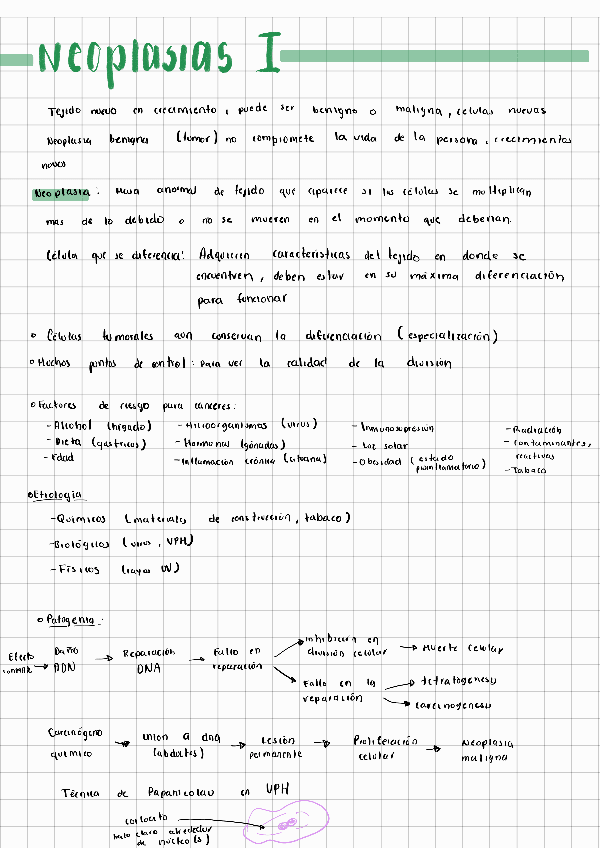 Neoplasias I
Tejido nuevo en crecimiento, puede ser benigno o maligna, células nuevas
Neoplasia benigna (tumor) no compromete la vida de la persona, crecimientos
novos
Neoplasia: Masa anormal de tejido que aparece si las células se multiplican
mas de lo debido o no se mueren en el momento que deberian.
Célula que se diferencia: Adquieren caracteristicas del tejido en donde se
encuentren, deben estar en su máxima diferenciación
para funcionar
Células tumorales aun conservan la diferenciación (especialización)
Muchos puntos de control: para ver la calidad de la división
Factores de riesgo para cánceres:
-Alcohol (higado) -Microorganismos (virus) -Inmunosupresion -Radiación
-Dieta (gastricos) -Hormonal (gónadas) -Luz solar -contaminantes,
reactivos
-Edad -Inflamación crónica (artrana) -Obesidad (estado
proinflamatorio) -Tabaco
Etiologia
-Quimicos (materiales de construcción, tabaco)
-Biológicos (virus, VPH)
-Físicos (rayos UV)
Patogenia:
Efecto → Daño ADN → Reparación DNA → Fallo en reparación
inhibicion en división celular → Muerte celular
Fallo en la reparación → tetratogenesis
→ carcinogenesis
Carcinógeno quimico → union a dna (abductos) → Lesión permanente → Proliferación celular → Neoplasia maligna
Técnica de Papanicolau en VPH
halo claro alrededor
de núcleo(s)